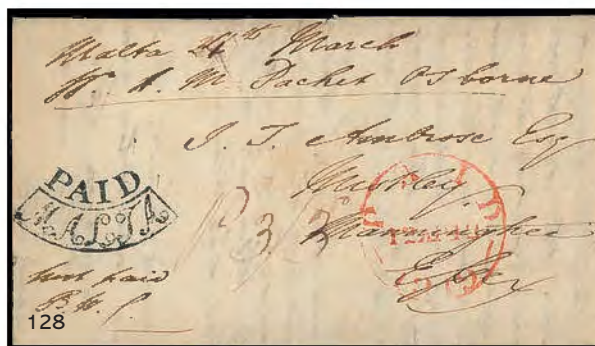 Malta 24th March
H. M. Packet Osborne
J. T. Ambrose Esq
Mistley
Manningtree
Essex
PAID
MALTA
P 3/3
PAID
post paid
128